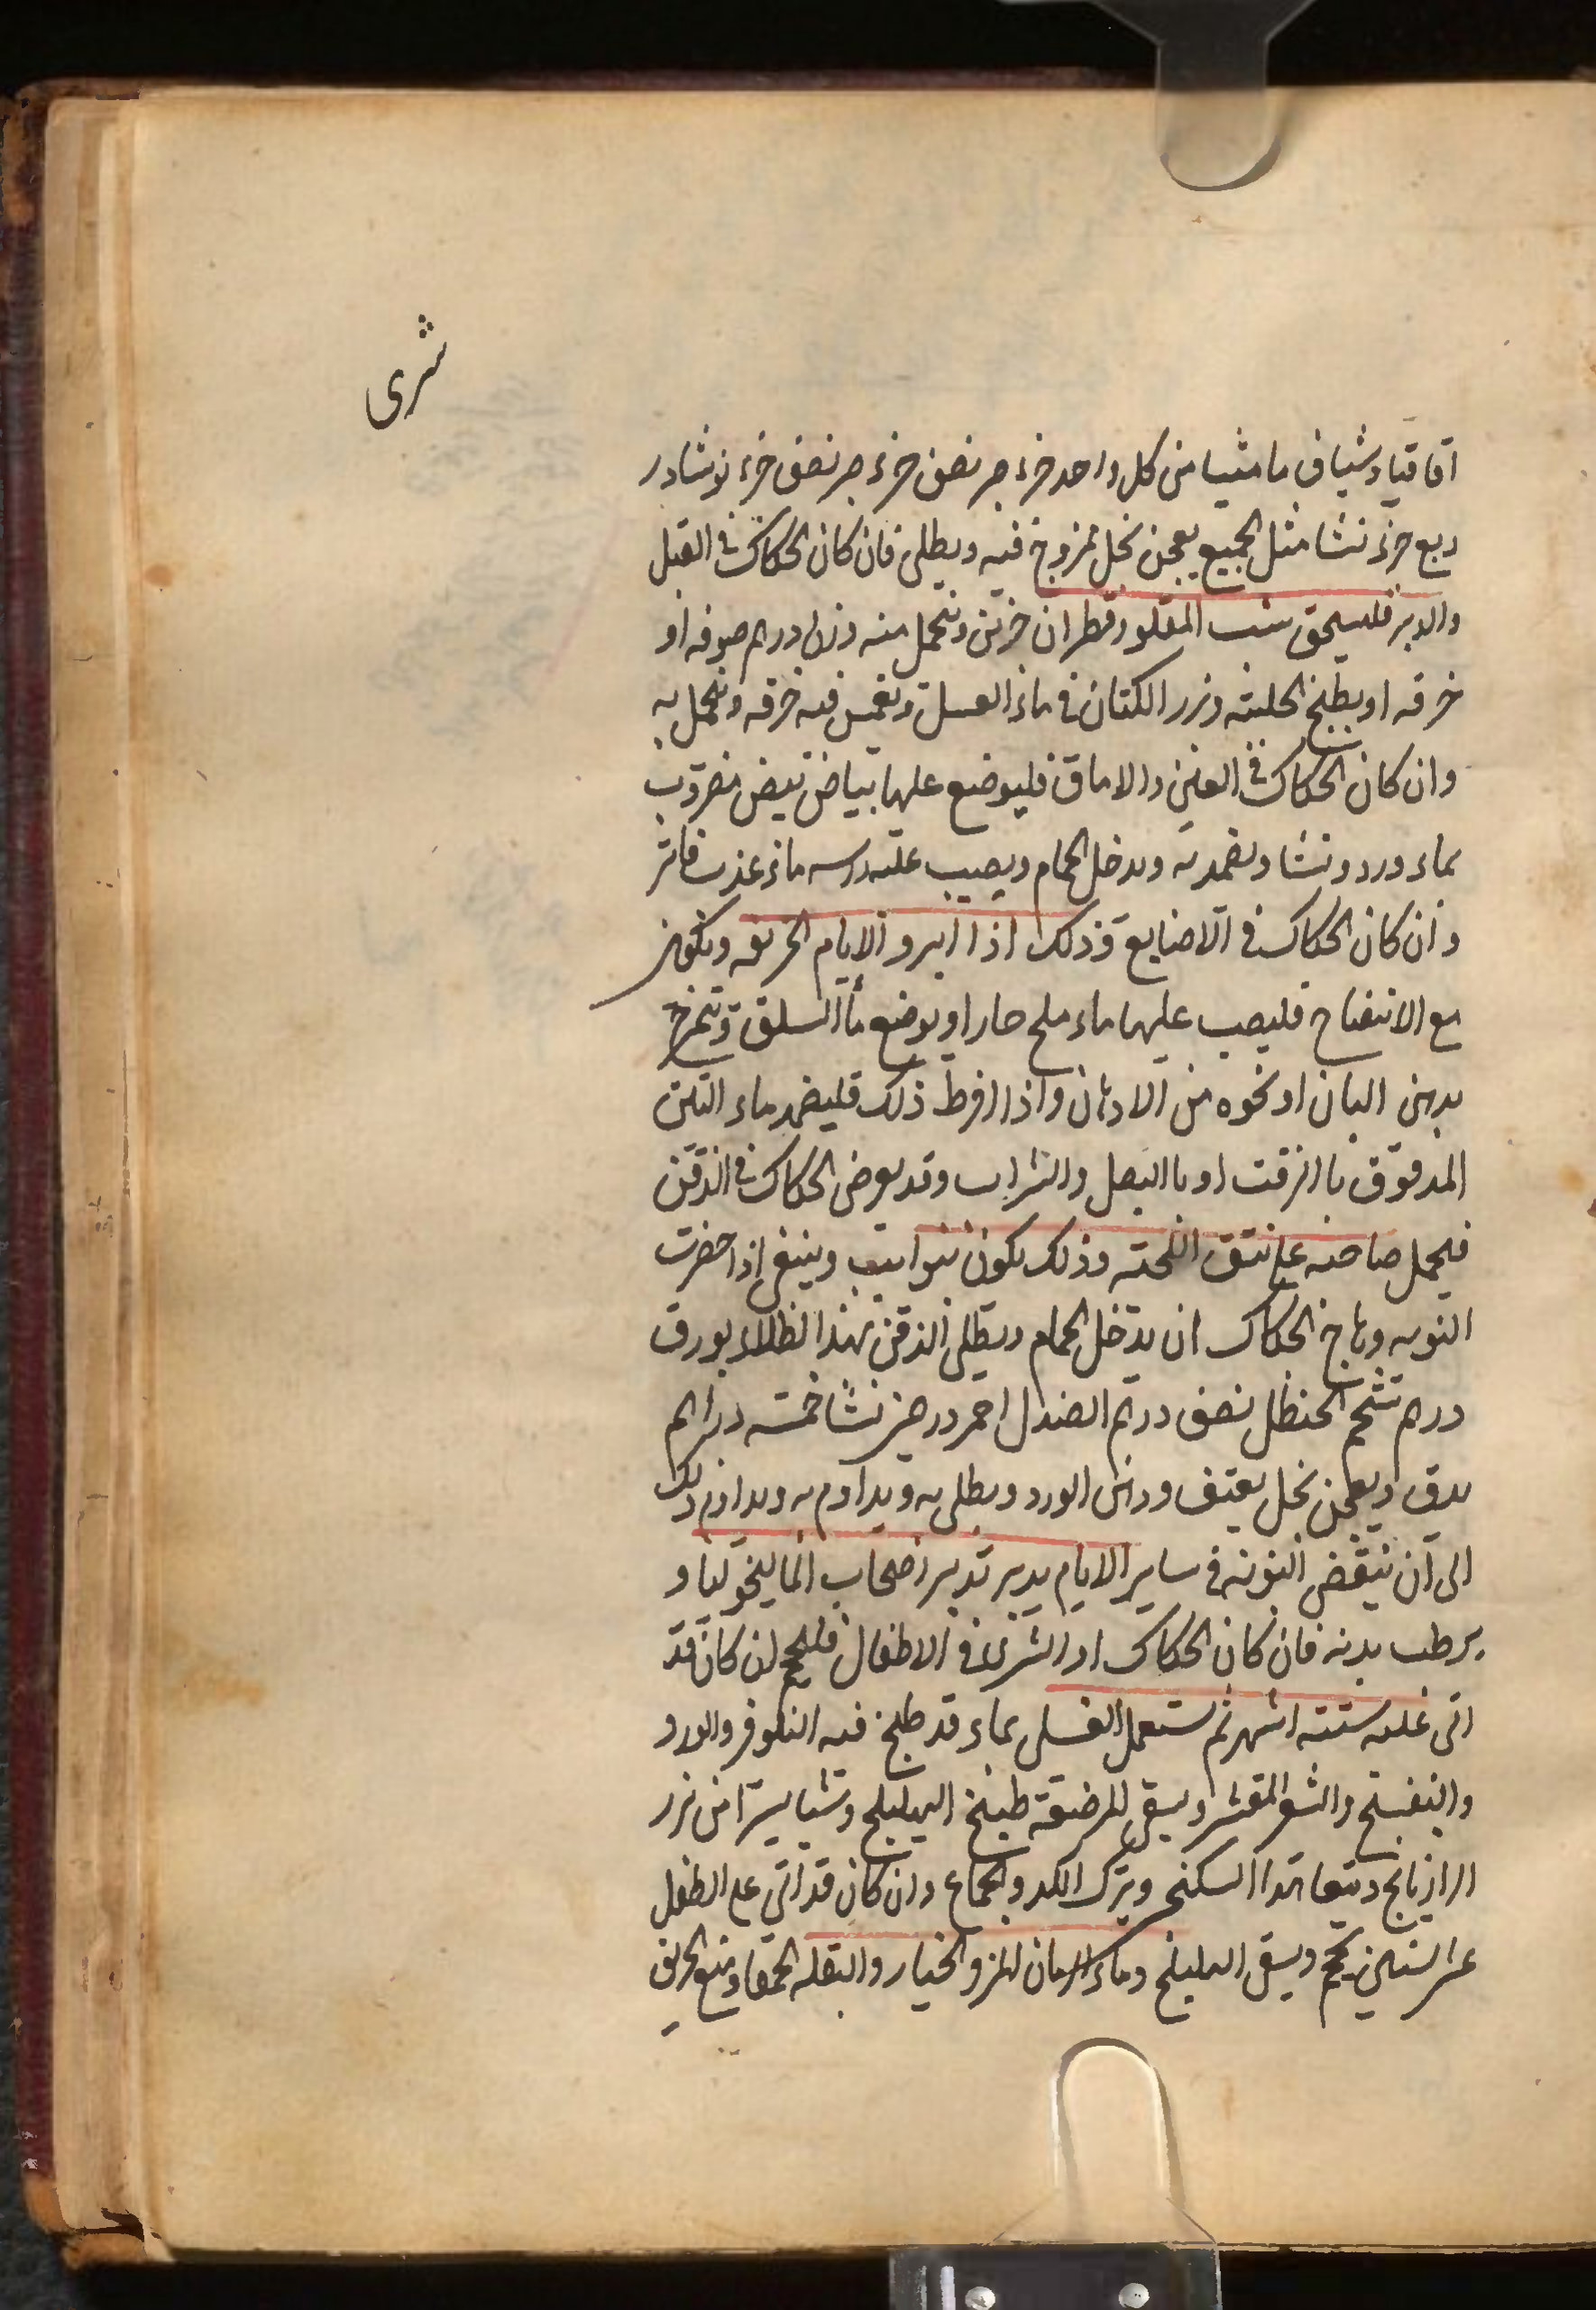 شرى
اقاقيا وشياف مامثيا من كل واحد جزء نصف جزء نصف جزء نوشادر
ربع جزء نشا مثل الجميع يعجن بخل ممزوج فيه ويطلى فان كان الحكاك في القبل
والدبر فليسحق شب المقلو وقطران جزئين وتتحمل منه وزن درهم صوفه او
خرقه او يطبخ الحلبه وبزر الكتان في ماء العسل ويغمس فيه خرقه ويتحمل به
وان كان الحكاك في العين والاماق فليوضع عليها بياض بيض مضروب
بماء ورد ونشا ويضمد به ويدخل الحمام ويصيب عليه راسه ماء عذب فاتر
وان كان الحكاك في الاصابع وذلك اذا ابرد الايام الخريف ويكون
مع الانتفاخ فليصب عليها ماء ملح حار او يوضع ماء السلق وتتمرخ
بدهن البان او نحوه من الادهان واذا افرط ذلك فليضمد بماء التين
المدقوق بالزفت او بالبصل والشراب وقد يعرض الحكاك في الذقن
فيحمل صاحبه على نتف اللحيه وذلك يكون بنوايب وينبغي اذا حضرت
النوبه وهاج الحكاك ان يدخل الحمام ويطلى الذقن بهذا الطلاء بورق
درهم شحم الحنظل نصف درهم الصندل احمر درهمين نشا خمسه دراهم
يدق ويعجن بخل يعتق ودهن الورد ويطلى به ويداوم به ويداوم ذلك
الى ان تنقضى النوبه في ساير الايام يدبر تدبير اصحاب الماليخوليا و
يرطب بدنه فان كان الحكاك او الشرى في الاطفال فليحجم لن كان قد
اتى عليه سته اشهر ثم يستعمل الغسل بماء قد طبخ فيه النلوفر والورد
والبنفسج والشعير المقشر ويسقى للمرضعه طبيخ الهليلج وشيا يسيرا من بزر
الرازيانج ويتعاهدا السكنجبين ويترك الكد والجماع وان كان قد اتى على الطفل
عشر السنين يحجم ويسقى الهليلج وماء الرمان المز والخيار والبقله الحمقا ويمنع الحريف